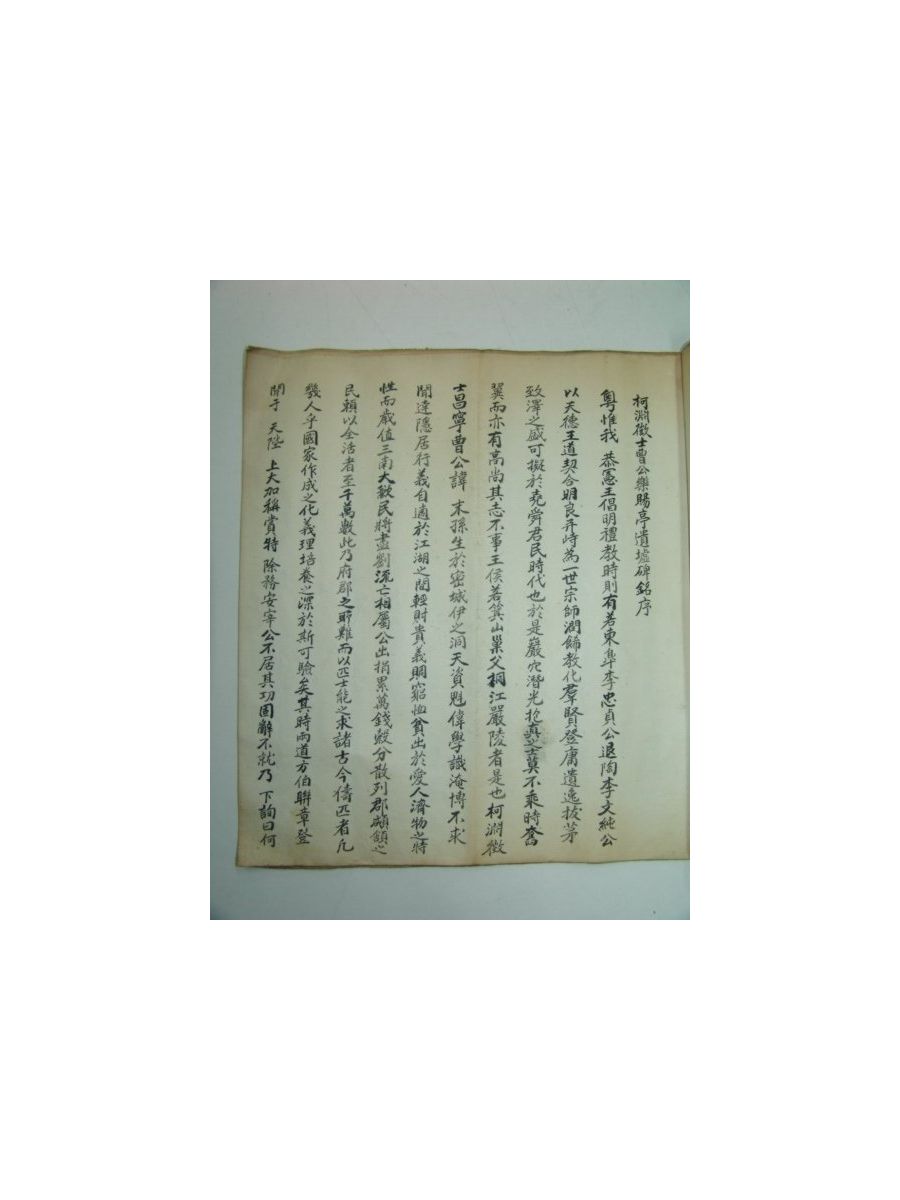 柯淵徵士曺公樂賜亭遺墟碑銘序
粤惟我 恭憲王倡明禮教時則有若東臯李忠貞公退陶李文純公
以天德王道契合明良幷峙為一世宗師潤餙教化羣賢登庸遺逸拔茅
致澤之盛可擬於堯舜君民時代也於是巖穴潛光抱真之士莫不乘時奮
翼而亦有高尚其志不事王侯若箕山巢父桐江嚴陵者是也柯淵徵
士昌寧曺公諱 末孫生於密城伊之洞天資魁偉學識淹博不求
聞達隱居行義自適於江湖之間輕財貴義賙窮恤貧出於愛人濟物之特
性而歲值三南大歉民將盡劉流亡相屬公出捐累萬錢穀分散列郡顑頷之
民賴以全活者至千萬數此乃府郡之所難而以匹士能之求諸古今儔匹者凡
幾人乎國家作成之化義理培養之深於斯可驗矣其時兩道方伯聯章登
聞于 天陛 上大加稱賞特 除務安宰公不居其功固辭不就乃 下詢曰何